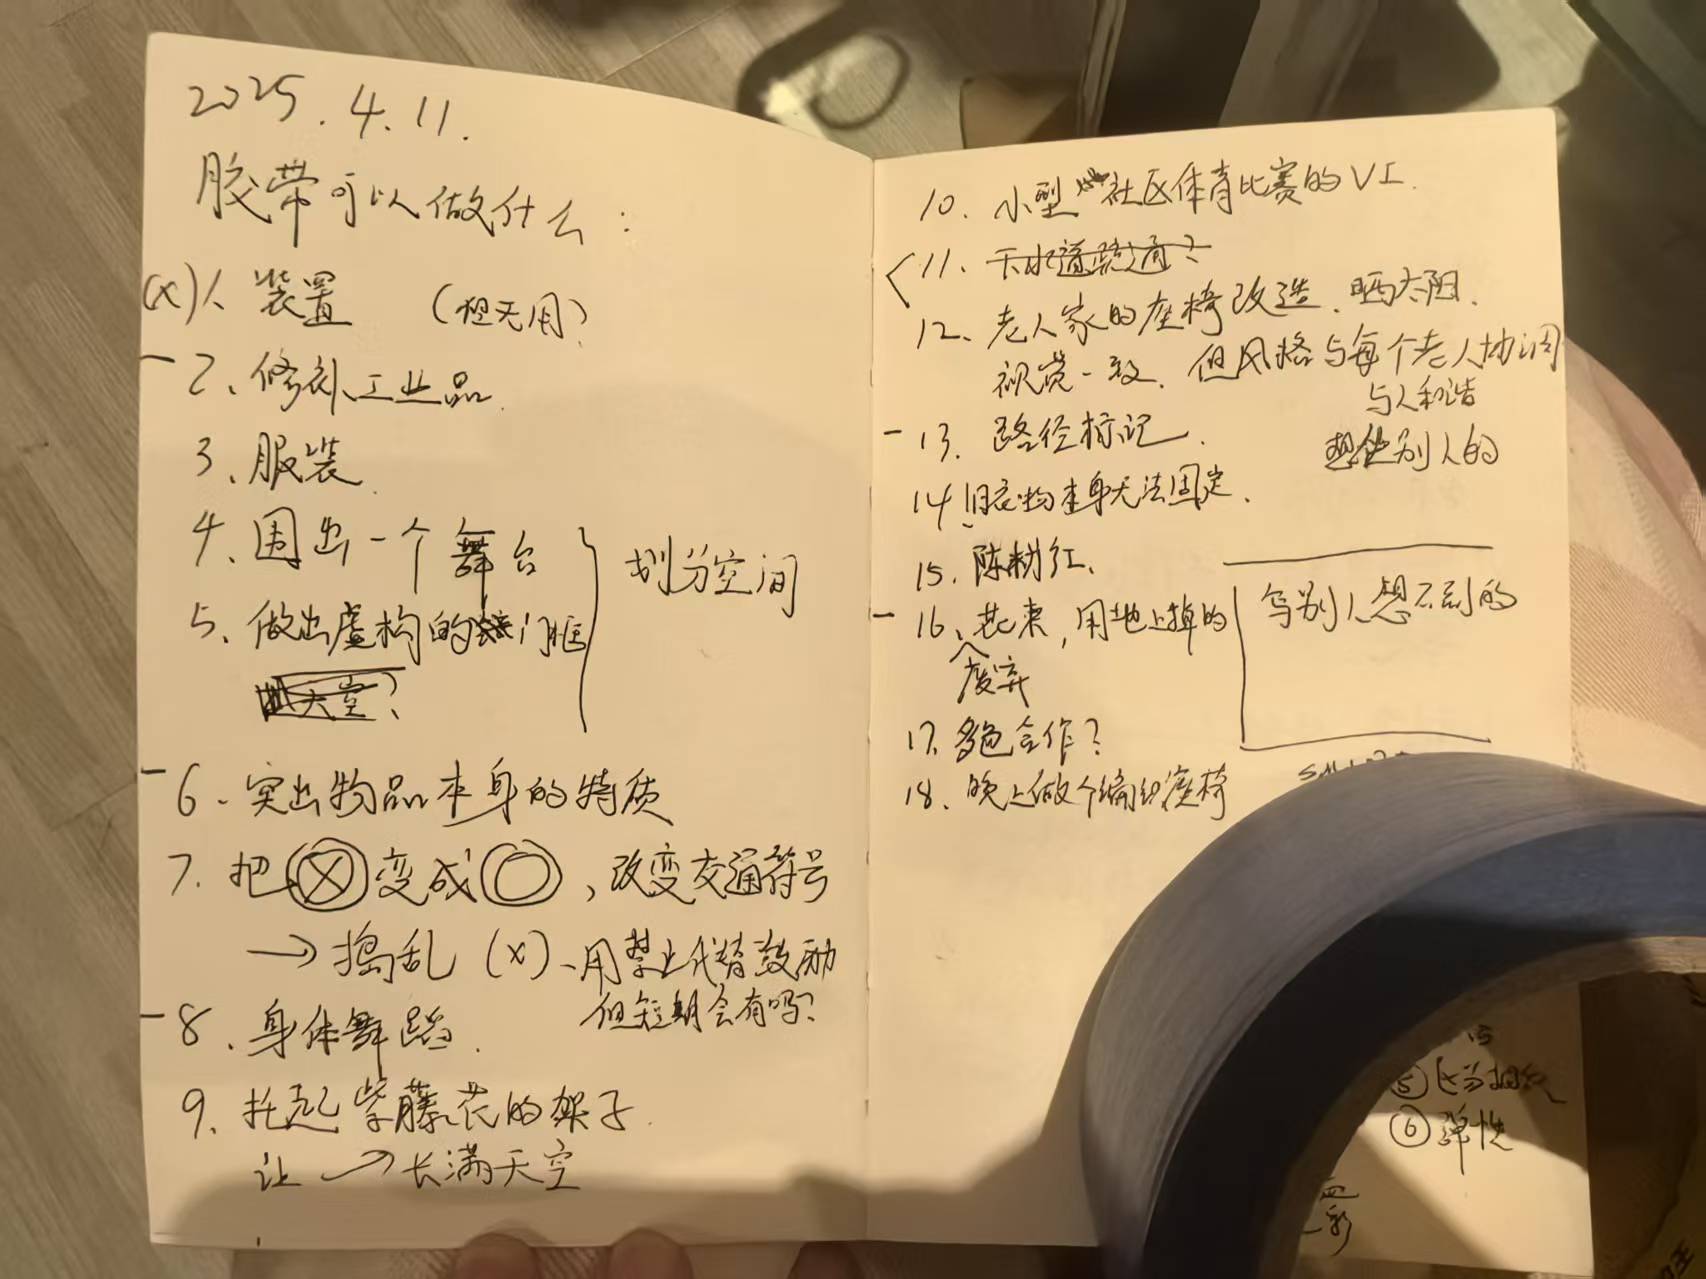 2025.4.11.
胶带可以做什么：
(x) 1、装置 （想无用？
- 2、修补工业品.
3、服装.
4、围出一个舞台
5、做出虚构的门框
划分空间
天空？
- 6、突出物品本身的特质
7.把ⓧ变成◎，改变交通符号
→捣乱（x）、用禁止代替鼓励
但短期会有吗？
- 8、身体舞蹈.
9、托起紫藤花的架子.
让→长满天空
10、小型社区体育比赛的VI.
11、下水道疏通？
12、老人家的座椅改造.晒太阳.
视觉一致.但风格与每个老人协调
与人和谐
- 13、路径标记.
别人的
14 旧衣物本身无法固定.
15、陈粉红、
- 16、花束，用地上掉的
废弃
写别人想不到的
17、多色合作？
18、晚上做个编织座椅
⑤
⑥弹性